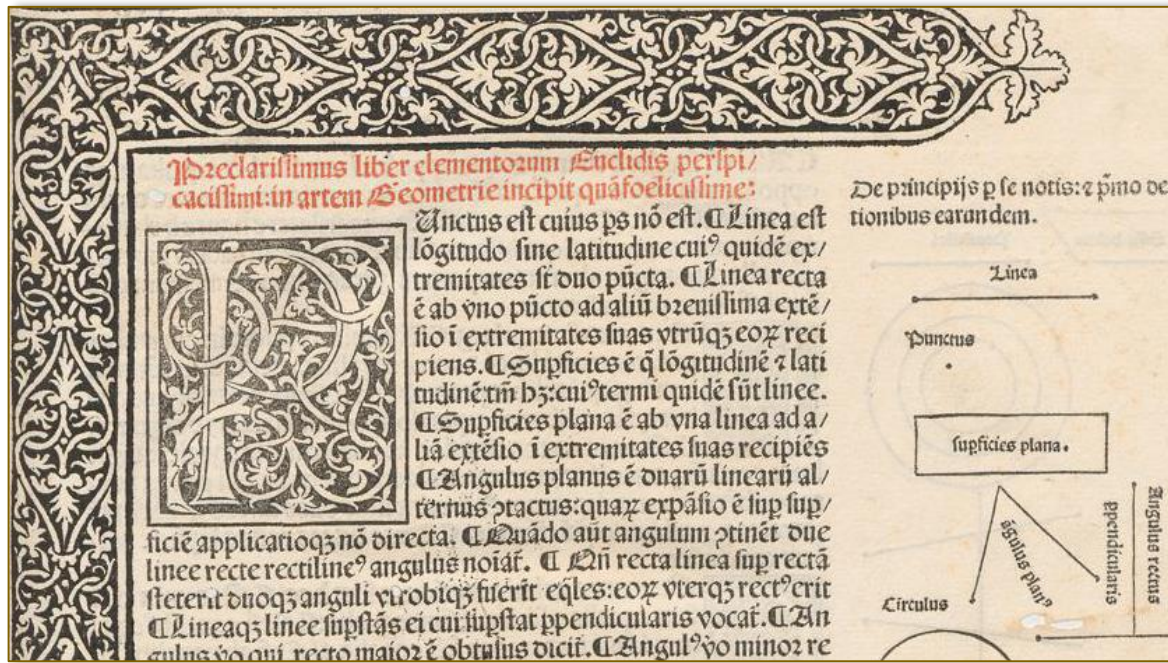 Preclarissimus liber elementorum Euclidis perspi/
cacissimi: in artem Geometrie incipit quãfoelicissime:
PUnctus est cuius ꝑs nõ est. ⸿ Linea est
lõgitudo sine latitudine cuiꝰ quidẽ ex/
tremitates sũt duo pũcta. ⸿ Linea recta
ẽ ab vno pũcto ad aliũ breuissima extẽ/
sio ĩ extremitates suas vtrũqꝫ eoꝝ reci
piens. ⸿ Supficies ẽ q̃ lõgitudinẽ ⁊ lati
tudinẽ tm̃ hꝫ: cuiꝰ termi quidẽ sũt linee.
⸿ Supficies plana ẽ ab vna linea ad a/
liã extẽsio ĩ extremitates suas recipiẽs
⸿ Angulus planus ẽ duarũ linearũ al/
ternus ꝯtactus: quaꝝ expãsio ẽ sup sup/
ficiẽ applicatioqꝫ nõ directa. ⸿ Quãdo aũt angulum ꝯtinẽt due
linee recte rectilineꝰ angulus noiat̃. ⸿ Qñ recta linea sup rectã
steterit duoqꝫ anguli vtrobiqꝫ fuerĩt eq̃les: eoꝝ vterqꝫ rectꝰ erit
⸿ Lineaqꝫ linee supstãs ei cui supstat ꝑpendicularis vocat̃. ⸿ An
gulus ṽo qui recto maior ẽ obtusus dicit̃. ⸿ Angulꝰ ṽo minor re
De principijs ꝑ se notis: ⁊ p̃mo de
tionibus earundem.
Linea
Punctus
supficies plana.
ãgulus planꝰ
ꝑpendicularis
Angulus rectus
Circulus